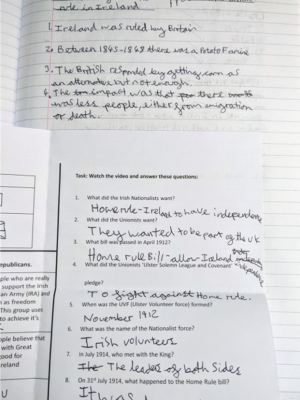 rule in Ireland
1. Ireland was ruled by Britain
2. Between 1845-1849 there was a Potato Famine
3. The British responded by getting corn as
an alternative but not enough.
4. The impact was that there
was less people, either from emigration
or death.
Task: Watch the video and answer these questions:
1. What did the Irish Nationalists want?
Home rule - Ireland to have independence
2. What did the Unionists want?
They wanted to be part of the UK
3. What bill was passed in April 1912?
Home rule Bill - allow Ireland
4. What did the Unionists 'Ulster Solemn League and Covenant'
pledge?
To fight against Home rule.
5. When was the UVF (Ulster Volunteer force) formed?
November 1912
6. What was the name of the Nationalist force?
Irish volunteers
7. In July 1914, who met with the King?
The leaders of both Sides
8. On 31st July 1914, what happened to the Home Rule bill?
It was
epublicans.
ple who are really
support the Irish
an Army (IRA) and
n as freedom
This group uses
to achieve it's
ople believe that
with Great
ood for
reland